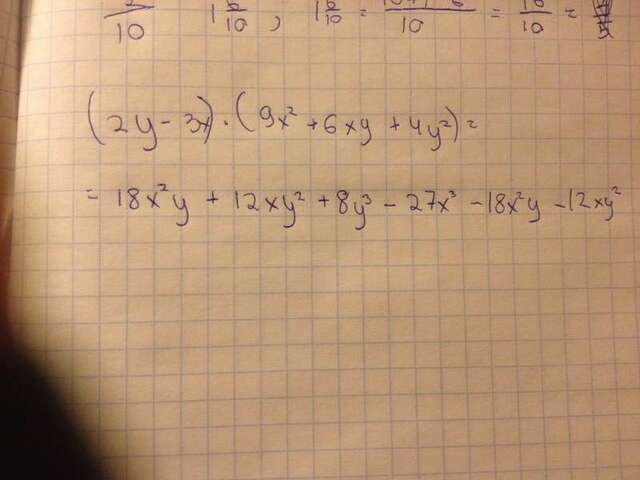 10 1 6/10 , 1 6/10 = /10 = /10 =
(2y - 3x) · (9x² + 6xy + 4y²) =
= 18x²y + 12xy² + 8y³ - 27x³ - 18x²y - 12xy²